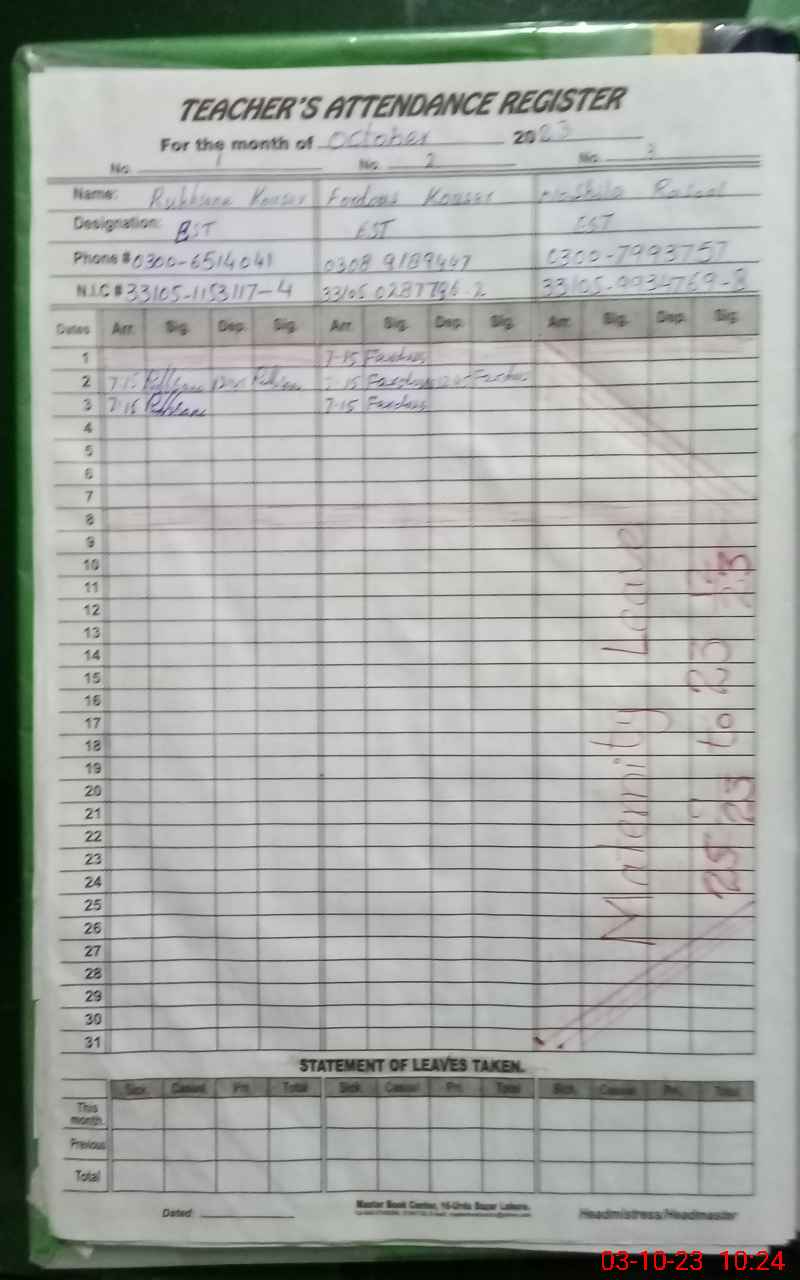 TEACHER'S ATTENDANCE REGISTER
For the month of October 2023
No. 1 No. 2 No. 3
Name: Rukhsana Kousar Ferdous Kousar Rasool
Designation: EST EST EST
Phone # 0300-6514041 0308 9189447 0300-7993757
N.I.C # 33105-1153117-4 33105 0287796-2 33105-9934769-8
Dates Arr. Sig. Dep. Sig. Arr. Sig. Dep. Sig. Arr. Sig. Dep. Sig.
1 7-15 Ferdous
2 7-15 7-15 Ferdous Ferdous
3 7-15 7-15 Ferdous
4
5
6
7
8
9
10
11
12
13
14
15
16
17
18
19
20
21
22
23
24
25
26
27
28
29
30
31
Maternity Leave
25 9 23 to 23 12 23
STATEMENT OF LEAVES TAKEN.
Sick. Casual Pri. Total Sick. Casual Pri. Total Sick. Casual Pri. Total
This month.
Previous
Total
Dated: Master Book Center, 16-Urdu Bazar Lahore. Headmistress/Headmaster
03-10-23 10:24